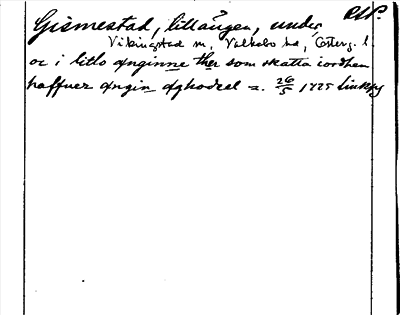 Gismestad, lillängen, under RAP.
Vikingstad sn, Valkebo hd, Österg. l.
oc i litlo ænginne ther som skatta iordhen
haffuer ængin æghodeel =. 26/5 1425 Linköp